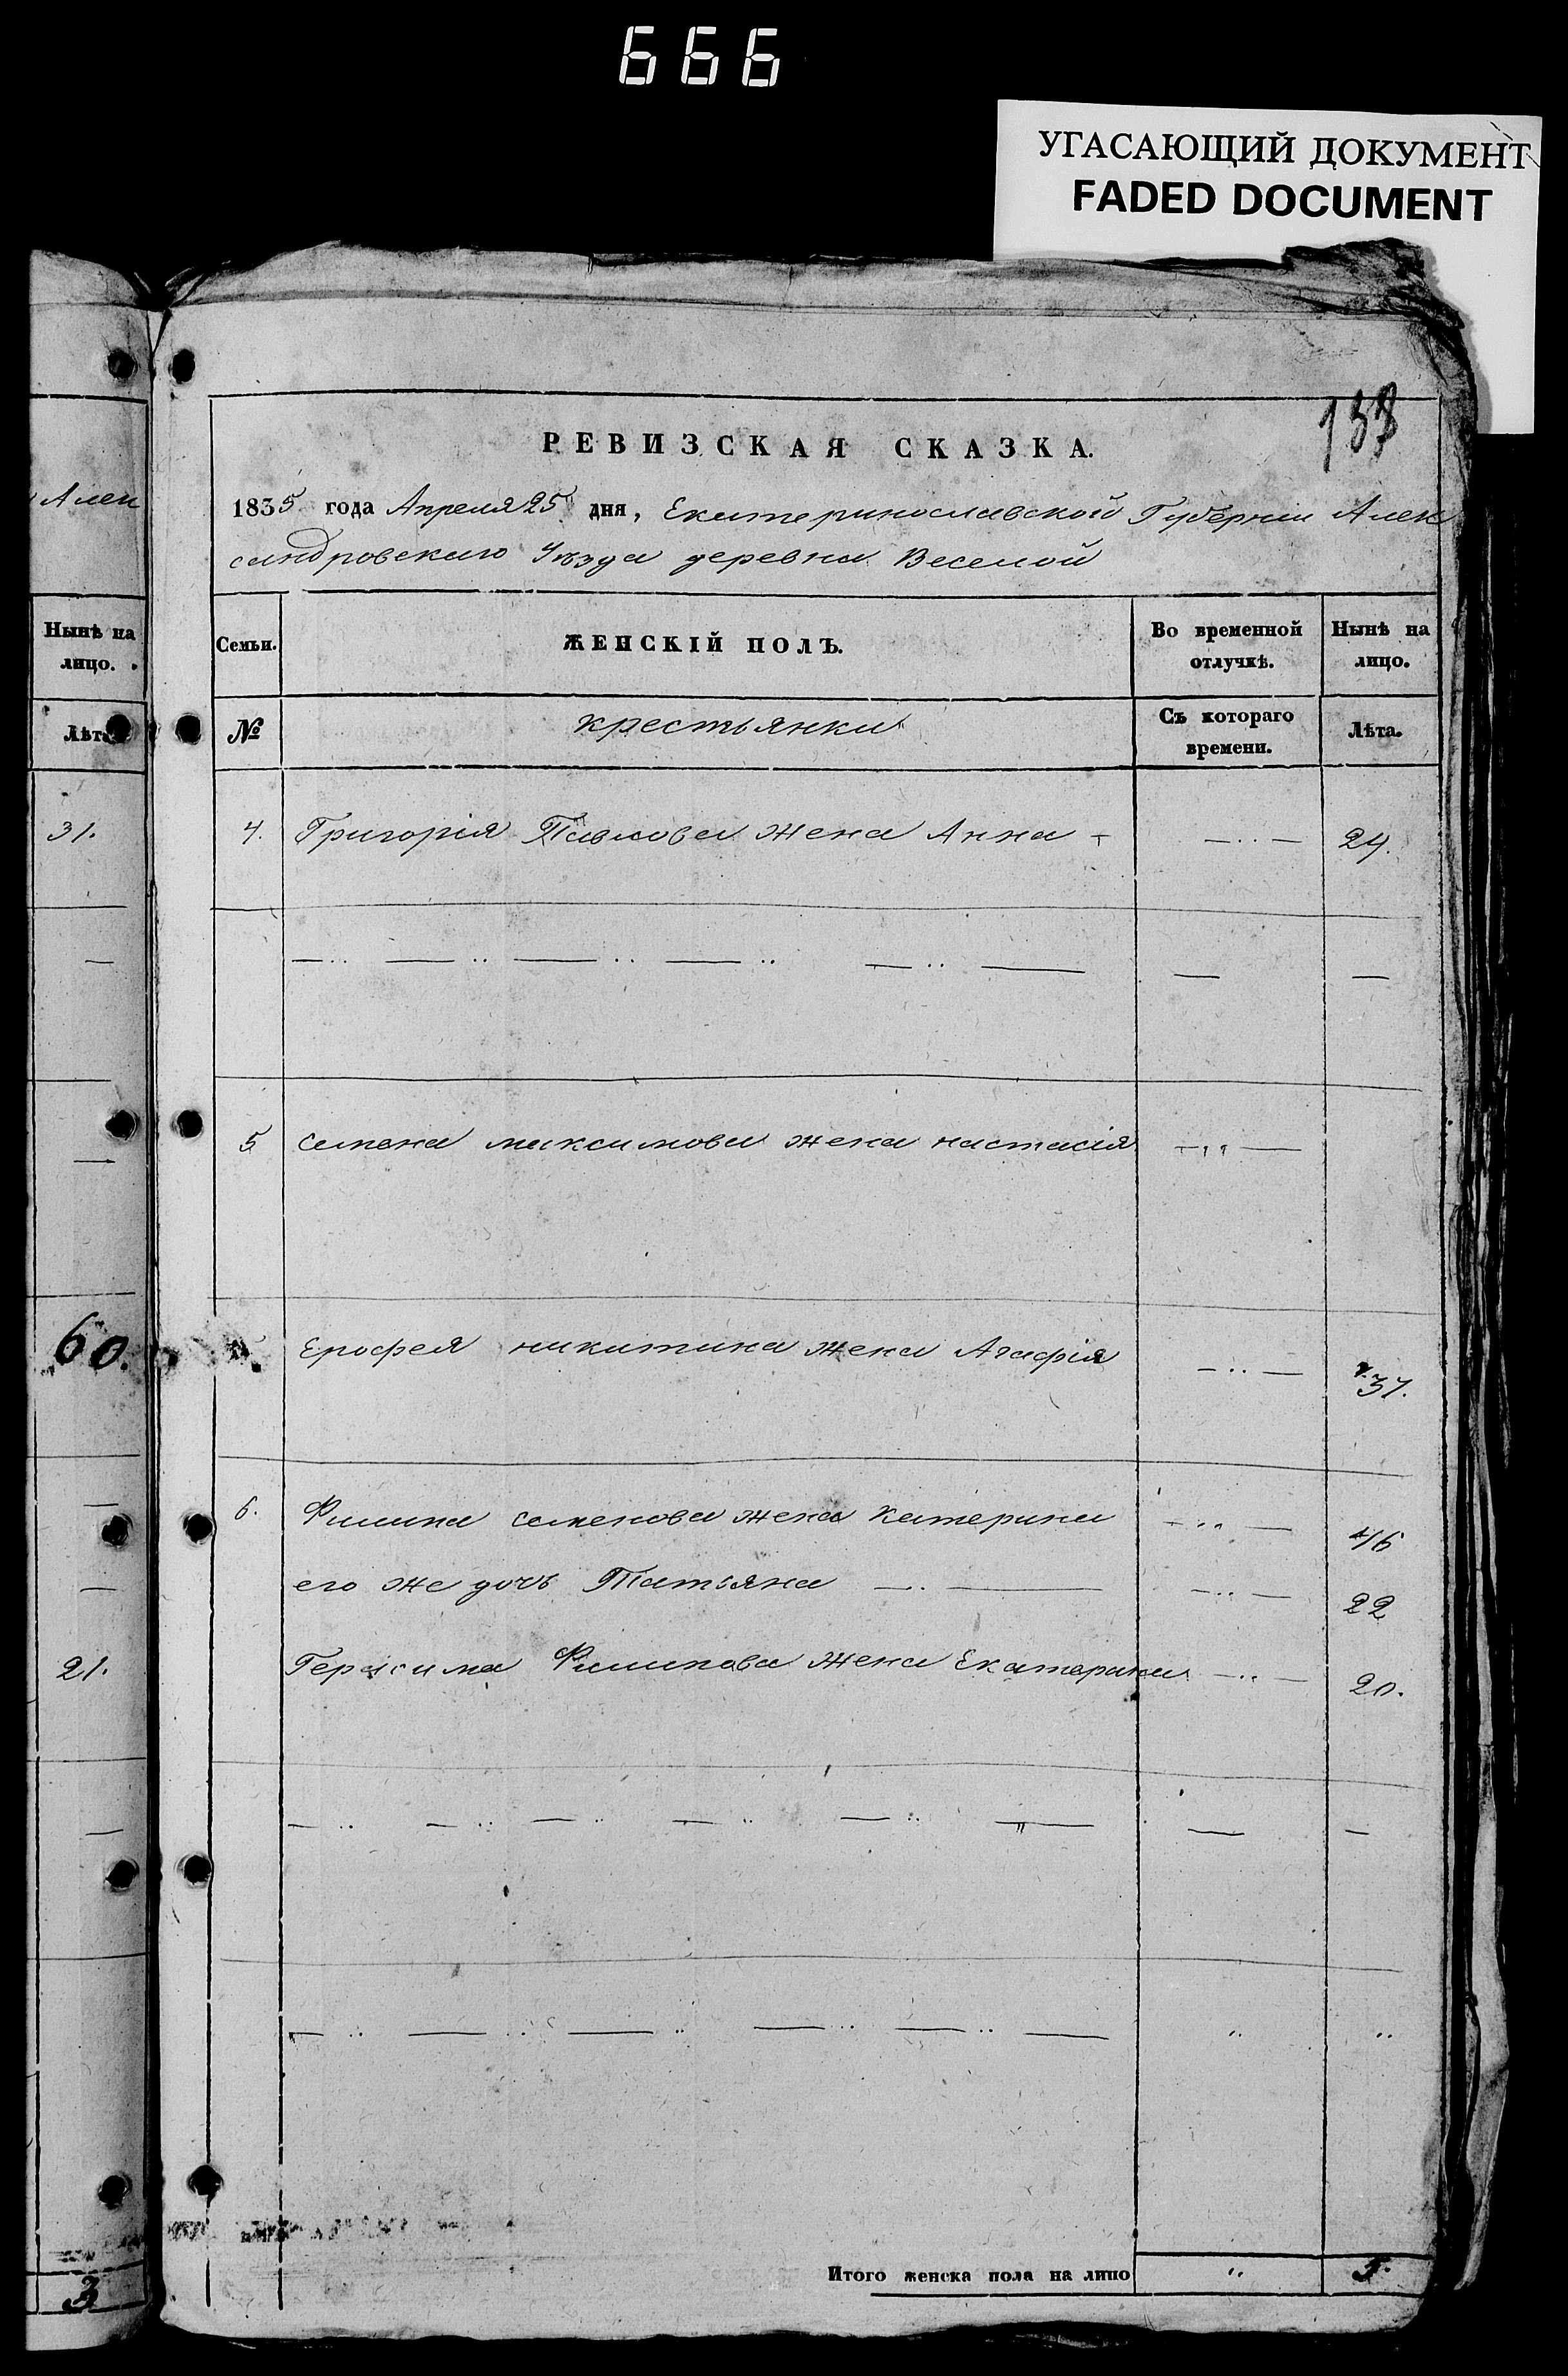 666
УГАСАЮЩИЙ ДОКУМЕНТ
FADED DOCUMENT
РЕВИЗСКАЯ СКАЗКА.
1835 года Апреля 25 дня, Екатеринославской Губернии Алек
сандровскаго Уѣзда деревна Веселой
Алек
Нынѣ на лицо.
Лѣта
31.
60.
21.
3
Семьи. ЖЕНСКІЙ ПОЛЪ. Во временной отлучкѣ. Нынѣ на лицо.
№ крестьянки Съ котораго времени. Лѣта.
4. Григорія Павлова жена Анна 24.
5 семена максимова жена настасія
Ерофея никитина жена Агафія 37.
6. Филипа семенова жена Катерина 46
его же дочь Татьяна 22
Герасима Филипова жена Екатерина 20.
Итого женска пола на лицо 5.